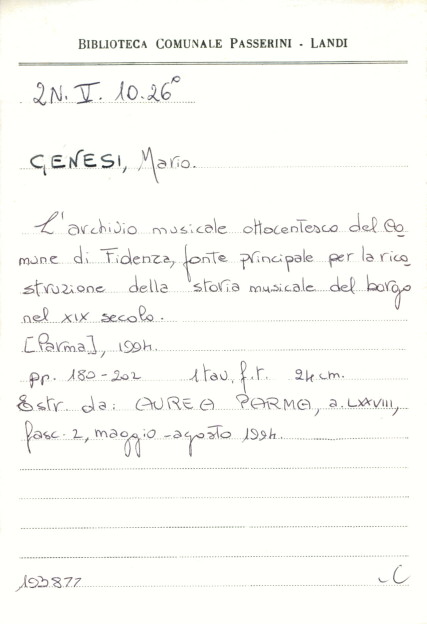 BIBLIOTECA COMUNALE PASSERINI - LANDI
2N. V. 10.26°
GENESI, Mario.
L'archivio musicale ottocentesco del Co
mune di Fidenza, fonte principale per la rico
struzione della storia musicale del borgo
nel XIX secolo.
[Parma], 1994.
pp. 180-202 1 tav. f.t. 24 cm.
Estr. da: AUREA PARMA, a. LXXVIII,
fasc. 2, maggio-agosto 1994.
193877